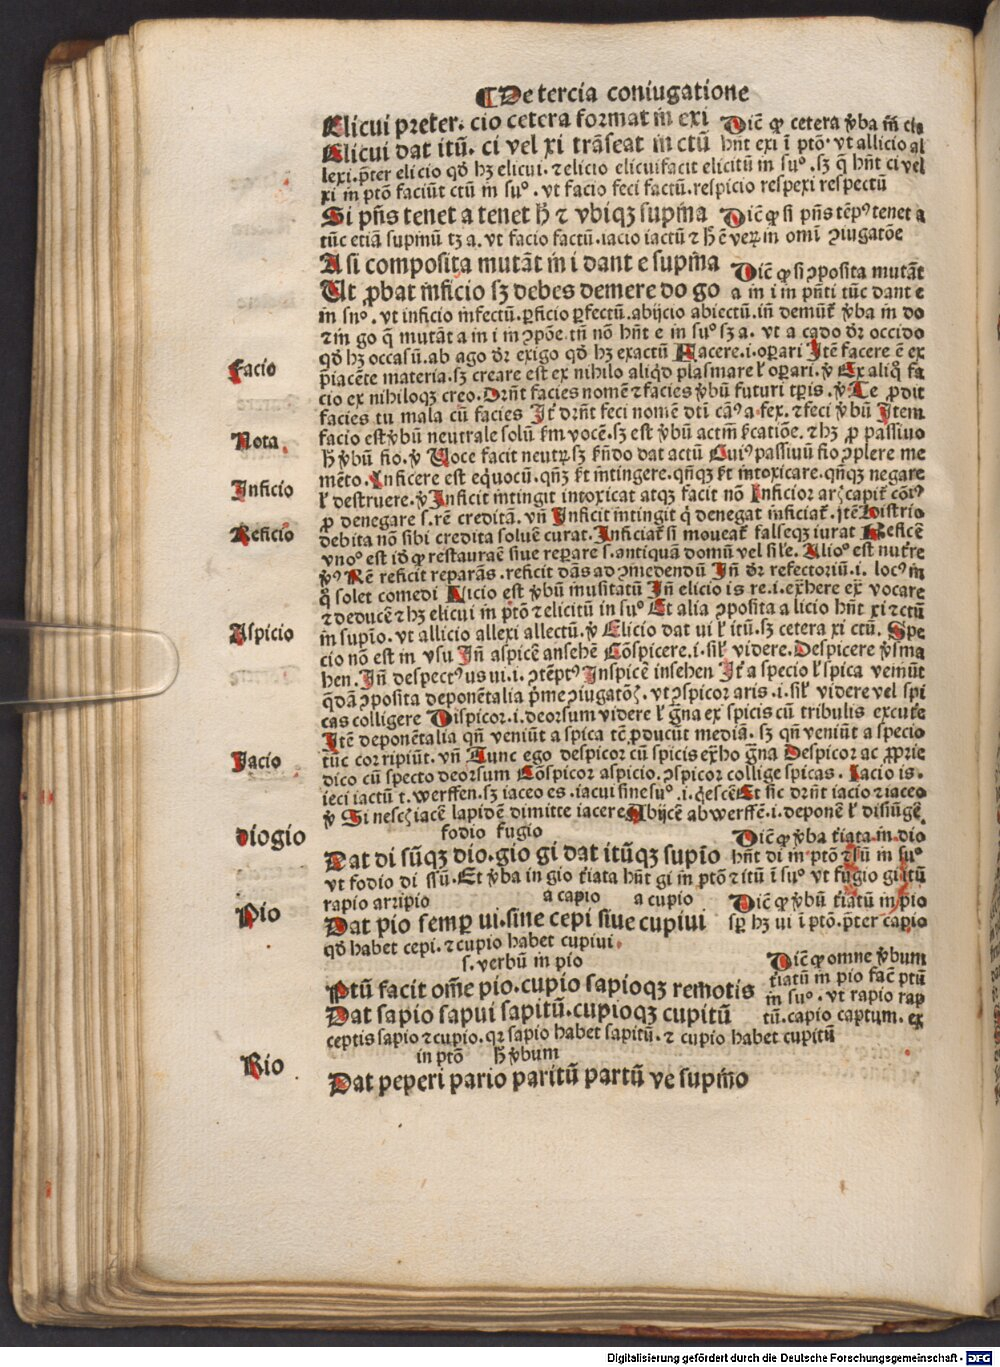 ¶De tercia coniugatione
Elicui preter. cio cetera format in exi
Dicẽ ꝙ cetera v̾ba in cio
Elicui dat itū. ci vel xi trãseat in ctū
hñt exi ī ptõ. vt allicio al
lexi. p̱ter elicio qď hꝫ elicui. ⁊ elicio elicui facit elicitū in suº. sꝫ q̄ hñt ci vel
xi in ptõ faciūt ctū in suº. vt facio feci factū. respicio respexi respectū
Si pñs tenet a tenet h̄ ⁊ vbiqꝫ supīna
Dicẽ ꝙ si pñs tẽpꝰ tenet a
tūc etiã supinū tꝫ a. vt facio factū. iacio iactū ⁊ h̄ ẽ veꝝ in omī ꝯiugatõe
A si composita mutãt in i dant e supīna
Dicẽ ꝙ si ꝯposita mutãt
Ut ꝓbat inficio sꝫ debes demere do go
a in i in pñti tūc dant e
in suº. vt inficio infectū. ꝑficio ꝑfectū. abijcio abiectū. iñ demūt᷑ v̾ba in do
⁊ in go q̄ mutãt a in i in ꝯpõe. tñ nõ hñt e in suº sꝫ a. vt a cado dr̄ occido
qď hꝫ occasū. ab ago dr̄ exigo qď hꝫ exactū Facere .i. oꝑari Itẽ facere ẽ ex
Facio
p̄iacẽte materia. sꝫ creare est ex nihilo aliqď plasmare ł oꝑari. v̾ Ex aliq̊ fa
cio ex nihiloqꝫ creo. Dr̄ñt facies nomẽ ⁊ facies v̾bū futuri tp̄is. v̾ Te ꝓdit
facies tu mala cū facies It᷑ dr̄ñt feci nomẽ dti cãꝰ a fex. ⁊ feci v̾bū Item
Nota.
facio est v̾bū neutrale solū ẜm vocẽ. sꝫ est v̾bū actiū ẜicatiõe. ⁊ hꝫ ꝓ passiuo
h̄ v̾bū fio. v̾ Uoce facit neutꝝ sꝫ ẜñdo dat actū Cuiꝰ passiuū fio ꝯplere me
mẽto. Inficere est equocū. qñꝫ ẜt intingere. qñqꝫ ẜt intoxicare. qñqꝫ negare
Inficio
ł destruere. v̾ Inficit intingit intoxicat atqꝫ facit nõ
ꝓ denegare s. rẽ creditã. vñ Inficit intingit q̇ denegat inficiat᷑. itẽ Histrio
Reficio
debita nõ sibi credita soluẽ curat. Inficiat᷑ si moueat᷑ falseqꝫ iurat Reficẽ
vnoº est id ꝙ restauraẽ siue reꝑare s. antiquã domū vel siłe. Alioº est nut᷑re
v̾ꝰ Rẽ reficit reparãs. reficit dãs ad ꝯmedendū Iñ dr̄ refectoriū .i. locꝰ in
q̊ solet comedi Licio est v̾bū inusitatū Iñ elicio is re .i. ext᷑here ex᷑ vocare
⁊ deducẽ ⁊ hꝫ elicui in ptõ ⁊ elicitū in suº Et alia ꝯposita a licio hñt xi ⁊ ctū
Aspicio
in supīo. vt allicio allexi allectū. v̾ Elicio dat ui ł itū. sꝫ cetera xi ctū. Spe
cio nõ est in vsu Iñ aspicẽ ansehẽ Cõspicere .i. siľ videre. Despicere v̾sma
hen. Iñ despectꝰ us ui .i. ꝯtẽptꝰ Inspicẽ insehen It᷑ a specio ł spica veniūt
q̄dã ꝯposita deponẽtalia p̄me ꝯiugatõꝭ. vt ꝯspicor aris .i. siľ videre vel spi
cas colligere Dispicor .i. deorsum videre ł g̃na ex spicis cū tribulis excut᷑e
Itẽ deponẽtalia qñ veniūt a spica tẽ ꝓducūt mediã. sꝫ qñ veniūt a specio
Iacio
tūc corripiūt. vñ Nunc ego despicor cū spicis ext᷑ho g̃na Despicor ac ꝓprie
dico cū specto deorsum Cõspicor aspicio. ꝯspicor collige spicas. Iacio is.
ieci iactū t. werffen. sꝫ iaceo es. iacui sine suº. i. q̇escẽ Et sic dr̄ñt iacio ⁊ iaceo
v̾ Si nescꝭ iacẽ lapidẽ dimitte iacere Abijcẽ abwerffẽ .i. deponẽ ł disiūgẽ
diogio
fodio fugio
Dicẽ ꝙ v̾ba t᷑iata in dio
Dat di sūqꝫ dio. gio gi dat itūqꝫ supīo
hñt di in ptõ ⁊ sū in suº
vt fodio di ssū. Et v̾ba in gio t᷑iata hñt gi in ptõ ⁊ itū ī suº vt fugio gi itū
rapio arripio a capio a cupio
Dicẽ ꝙ v̾bū t᷑iatū in pio
Pio
Dat pio semꝑ ui. sine cepi siue cupiui
sꝑ hꝫ ui ī ptõ. p̱ter capio
qď habet cepi. ⁊ cupio habet cupiui.
s. verbū in pio
Dicẽ ꝙ omne v̾bum
Ptū facit om̃e pio. cupio sapioqꝫ remotis
t᷑iatū in pio facẽ ptū
in suº. vt rapio rap
Dat sapio sapui sapitū. cupioqꝫ cupitū
tū. capio captum. ex
ceptis sapio ⁊ cupio. qꝛ sapio habet sapitū. ⁊ cupio habet cupitū
in ptõ h̄ v̾bum
Rio
Dat peperi pario paritū partū ve supīno
Digitalisierung gefördert durch die Deutsche Forschungsgemeinschaft - DFG